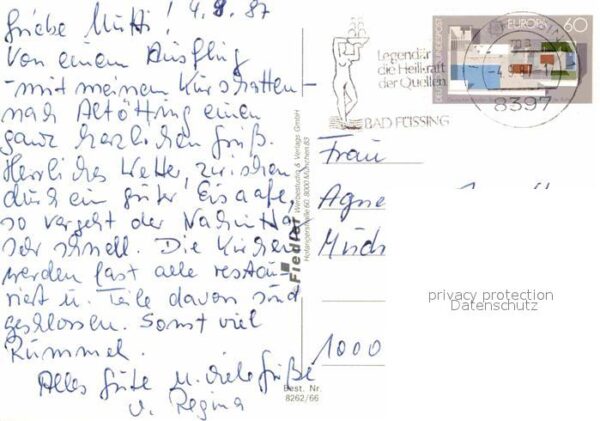 Liebe Mutti! 4.9.87
Von einem Ausflug
- mit meinem Kurschatten -
nach Altötting einen
ganz herzlichen Gruß.
Herrliches Wetter, zwischen-
durch ein guter Eiscafe,
so vergeht der Nachmittag
sehr schnell. Die Kirchen
werden fast alle restau-
riert u. Teile davon sind
geschlossen. Sonst viel
Rummel.
Alles Gute u. viele Grüße
v. Regina
Fiedler Werbestudio & Verlags GmbH
8000 München 83
Best. Nr.
8262/66
Legendär
die Heilkraft
der Quellen
BAD FÜSSING
DEUTSCHE BUNDESPOST
EUROPA
60
-4.9.87
8397
Frau
Agne
1000
privacy protection
Datenschutz